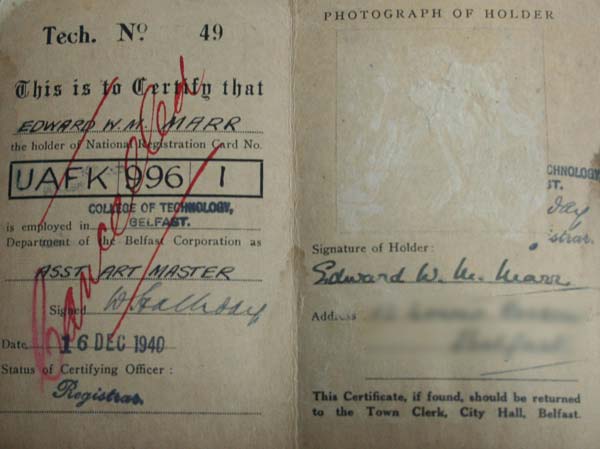 Tech. No 49
This is to Certify that
EDWARD W.M. MARR
the holder of National Registration Card No.
UAFK 996 1
COLLEGE OF TECHNOLOGY,
is employed in BELFAST.
Department of the Belfast Corporation as
ASST ART MASTER
Signed
Date 16 DEC 1940
Status of Certifying Officer :
Registrar.
Cancelled
PHOTOGRAPH OF HOLDER
CHNOLOGY
ST.
day
istrar.
Signature of Holder :
Edward W. M. Marr
Address
This Certificate, if found, should be returned
to the Town Clerk, City Hall, Belfast.